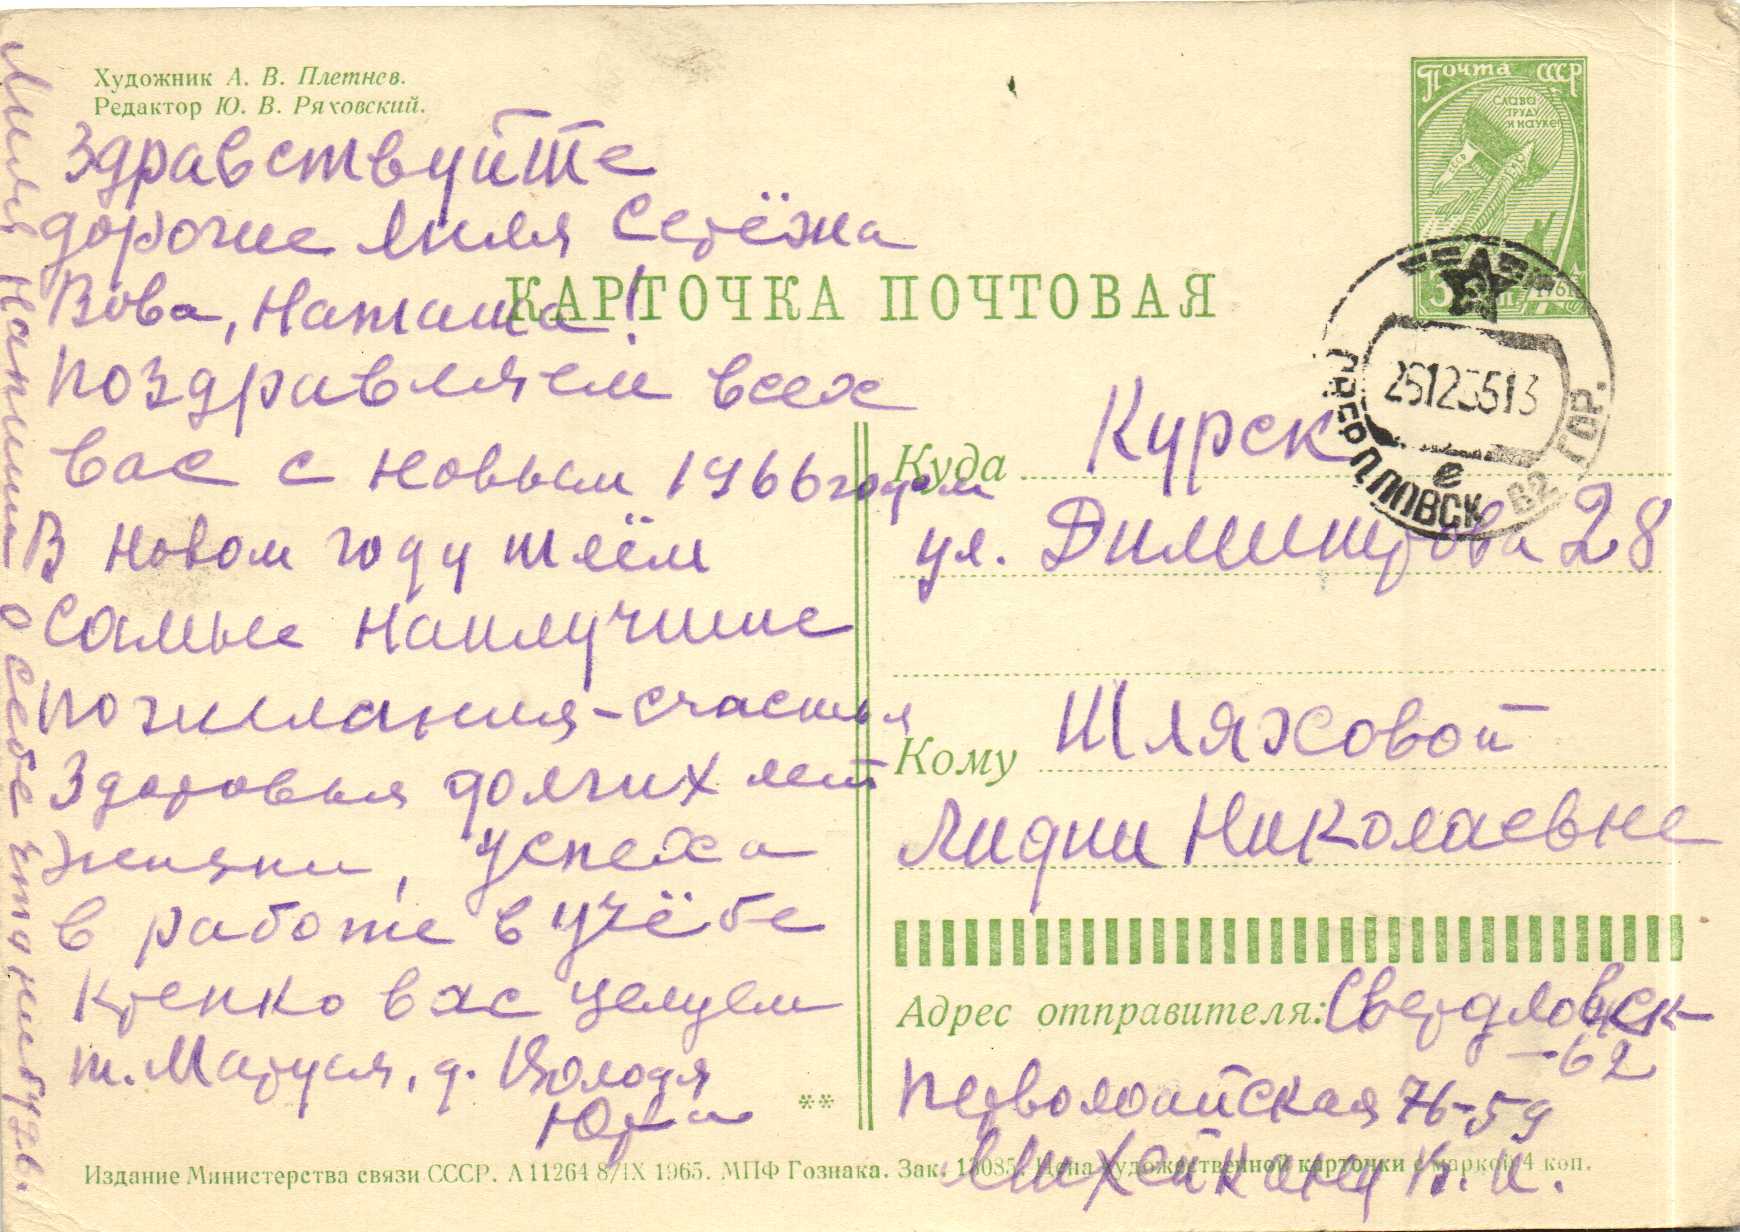 Художник А. В. Плетнев.
Редактор Ю. В. Ряховский.
Почта СССР
СЛАВА
ТРУДУ
И НАУКЕ!
КАРТОЧКА ПОЧТОВАЯ
Здравствуйте
дорогие Лиля Серёжа
Вова, Наташа!
Поздравляем всех
вас с новым 1966 годом
В новом году шлём
самые наилучшие
пожелания - счастья
здоровья долгих лет
жизни, успеха
в работе в учёбе
Крепко вас целуем
т. Маруся, д. Володя
Юра
Лиля напиши о себе
Куда Курск
ул. Димитрова 28
Кому Шляховой
Лидии Николаевне
Адрес отправителя: Свердловск-
-62
Первомайская 76-59
В. И.
**
Издание Министерства связи СССР. А 11264 8/IX 1965. МПФ Гознака. Зак. 13085. Цена художественной карточки с маркой 4 коп.